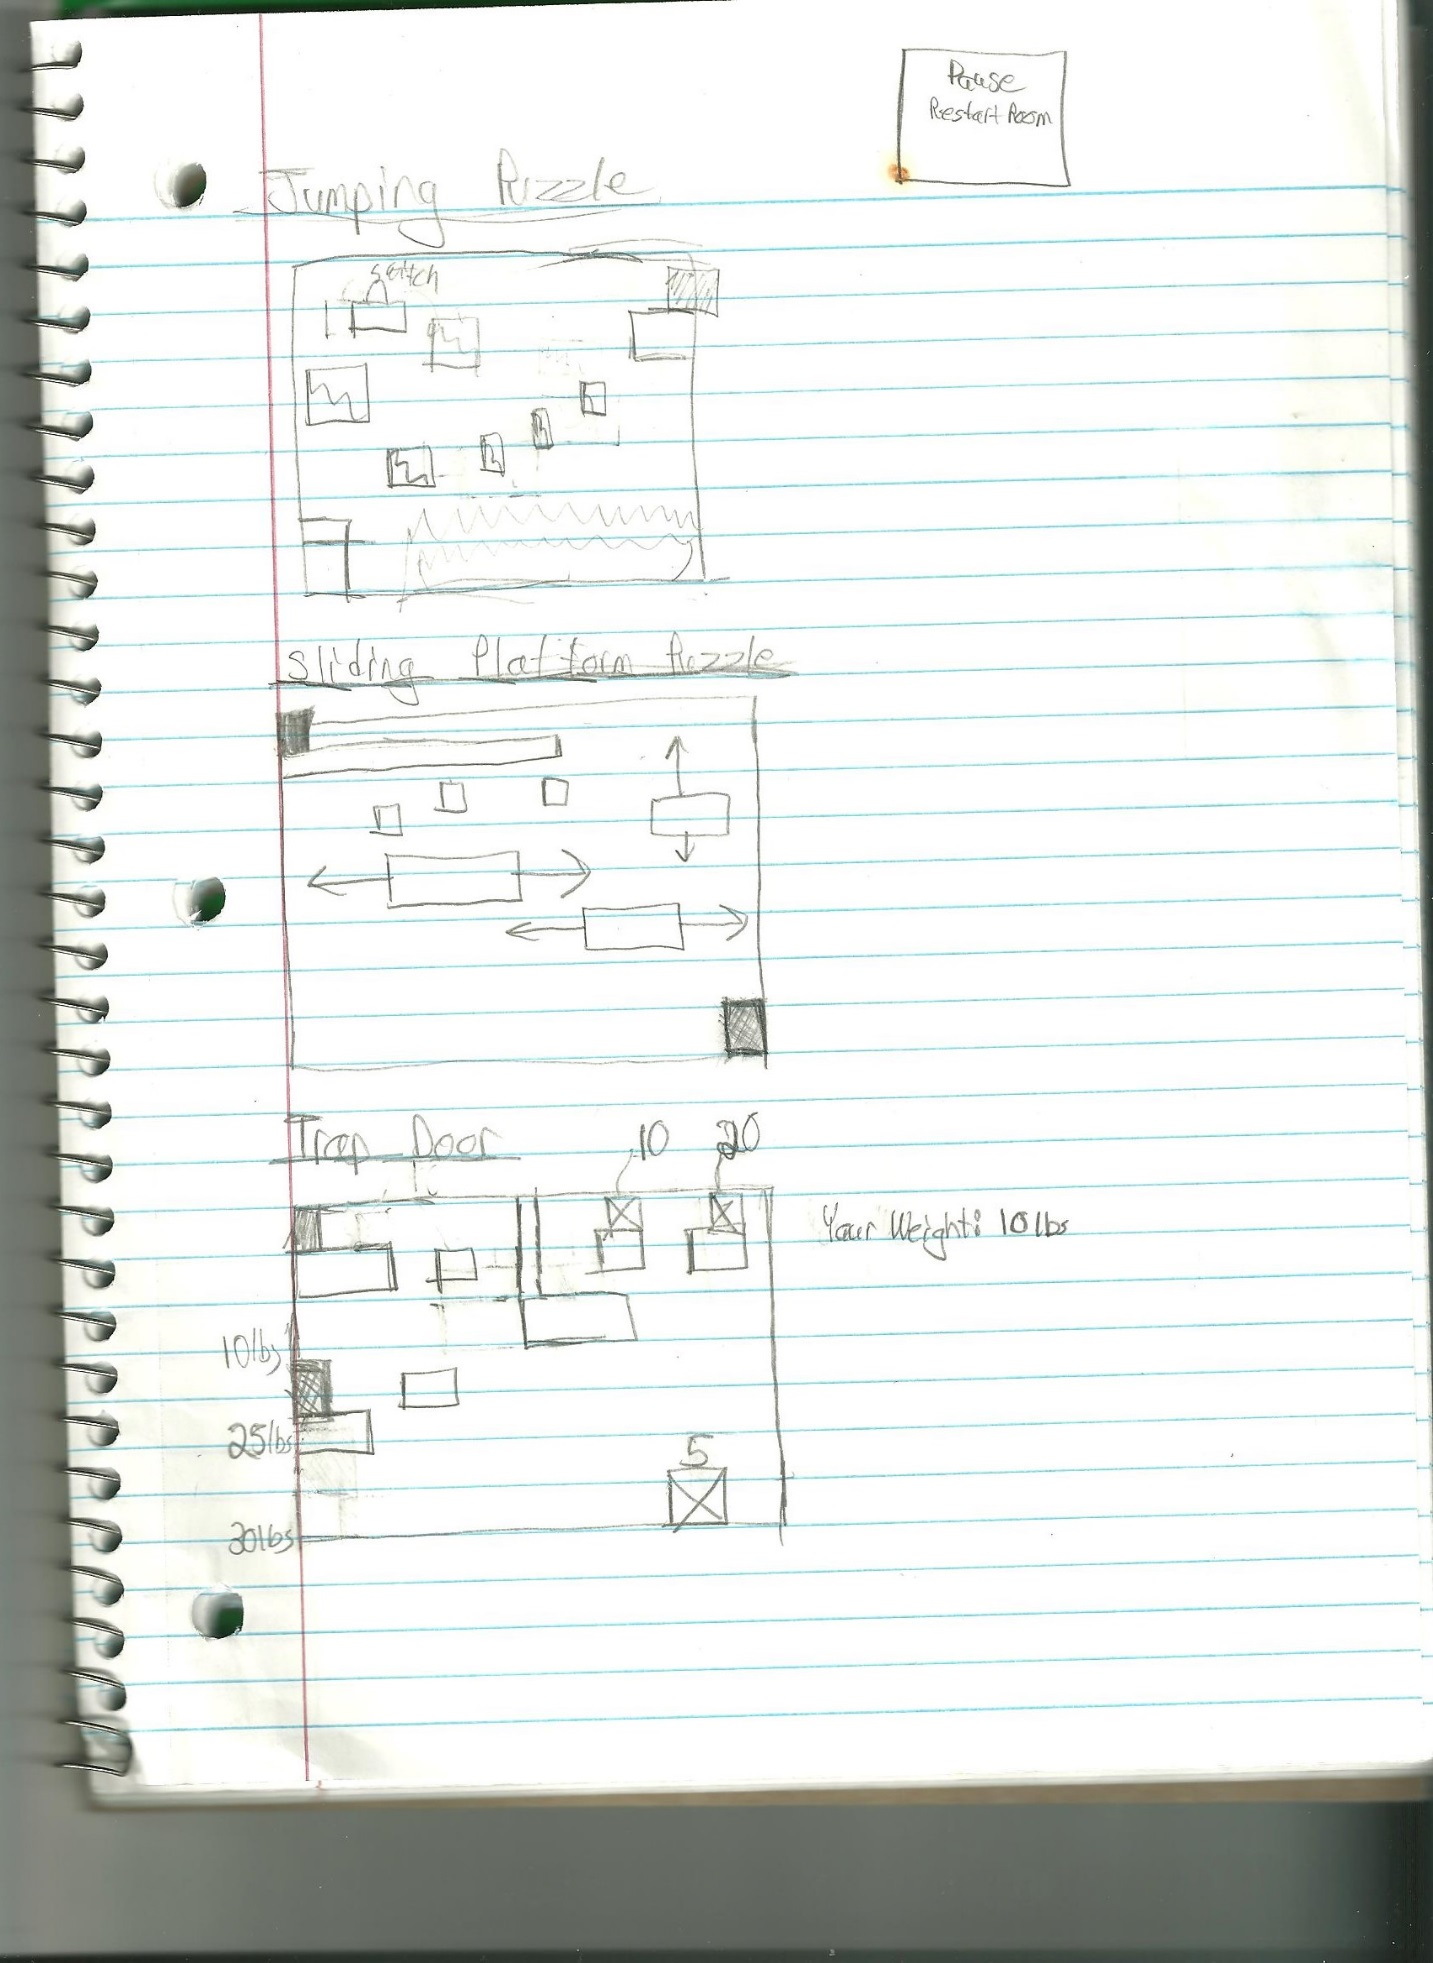 Pause
Restart Room
Jumping Puzzle
switch
Sliding Platform Puzzle
Trap Door
10
20
Your Weight: 10lbs
10lbs
25lbs
5
30lbs